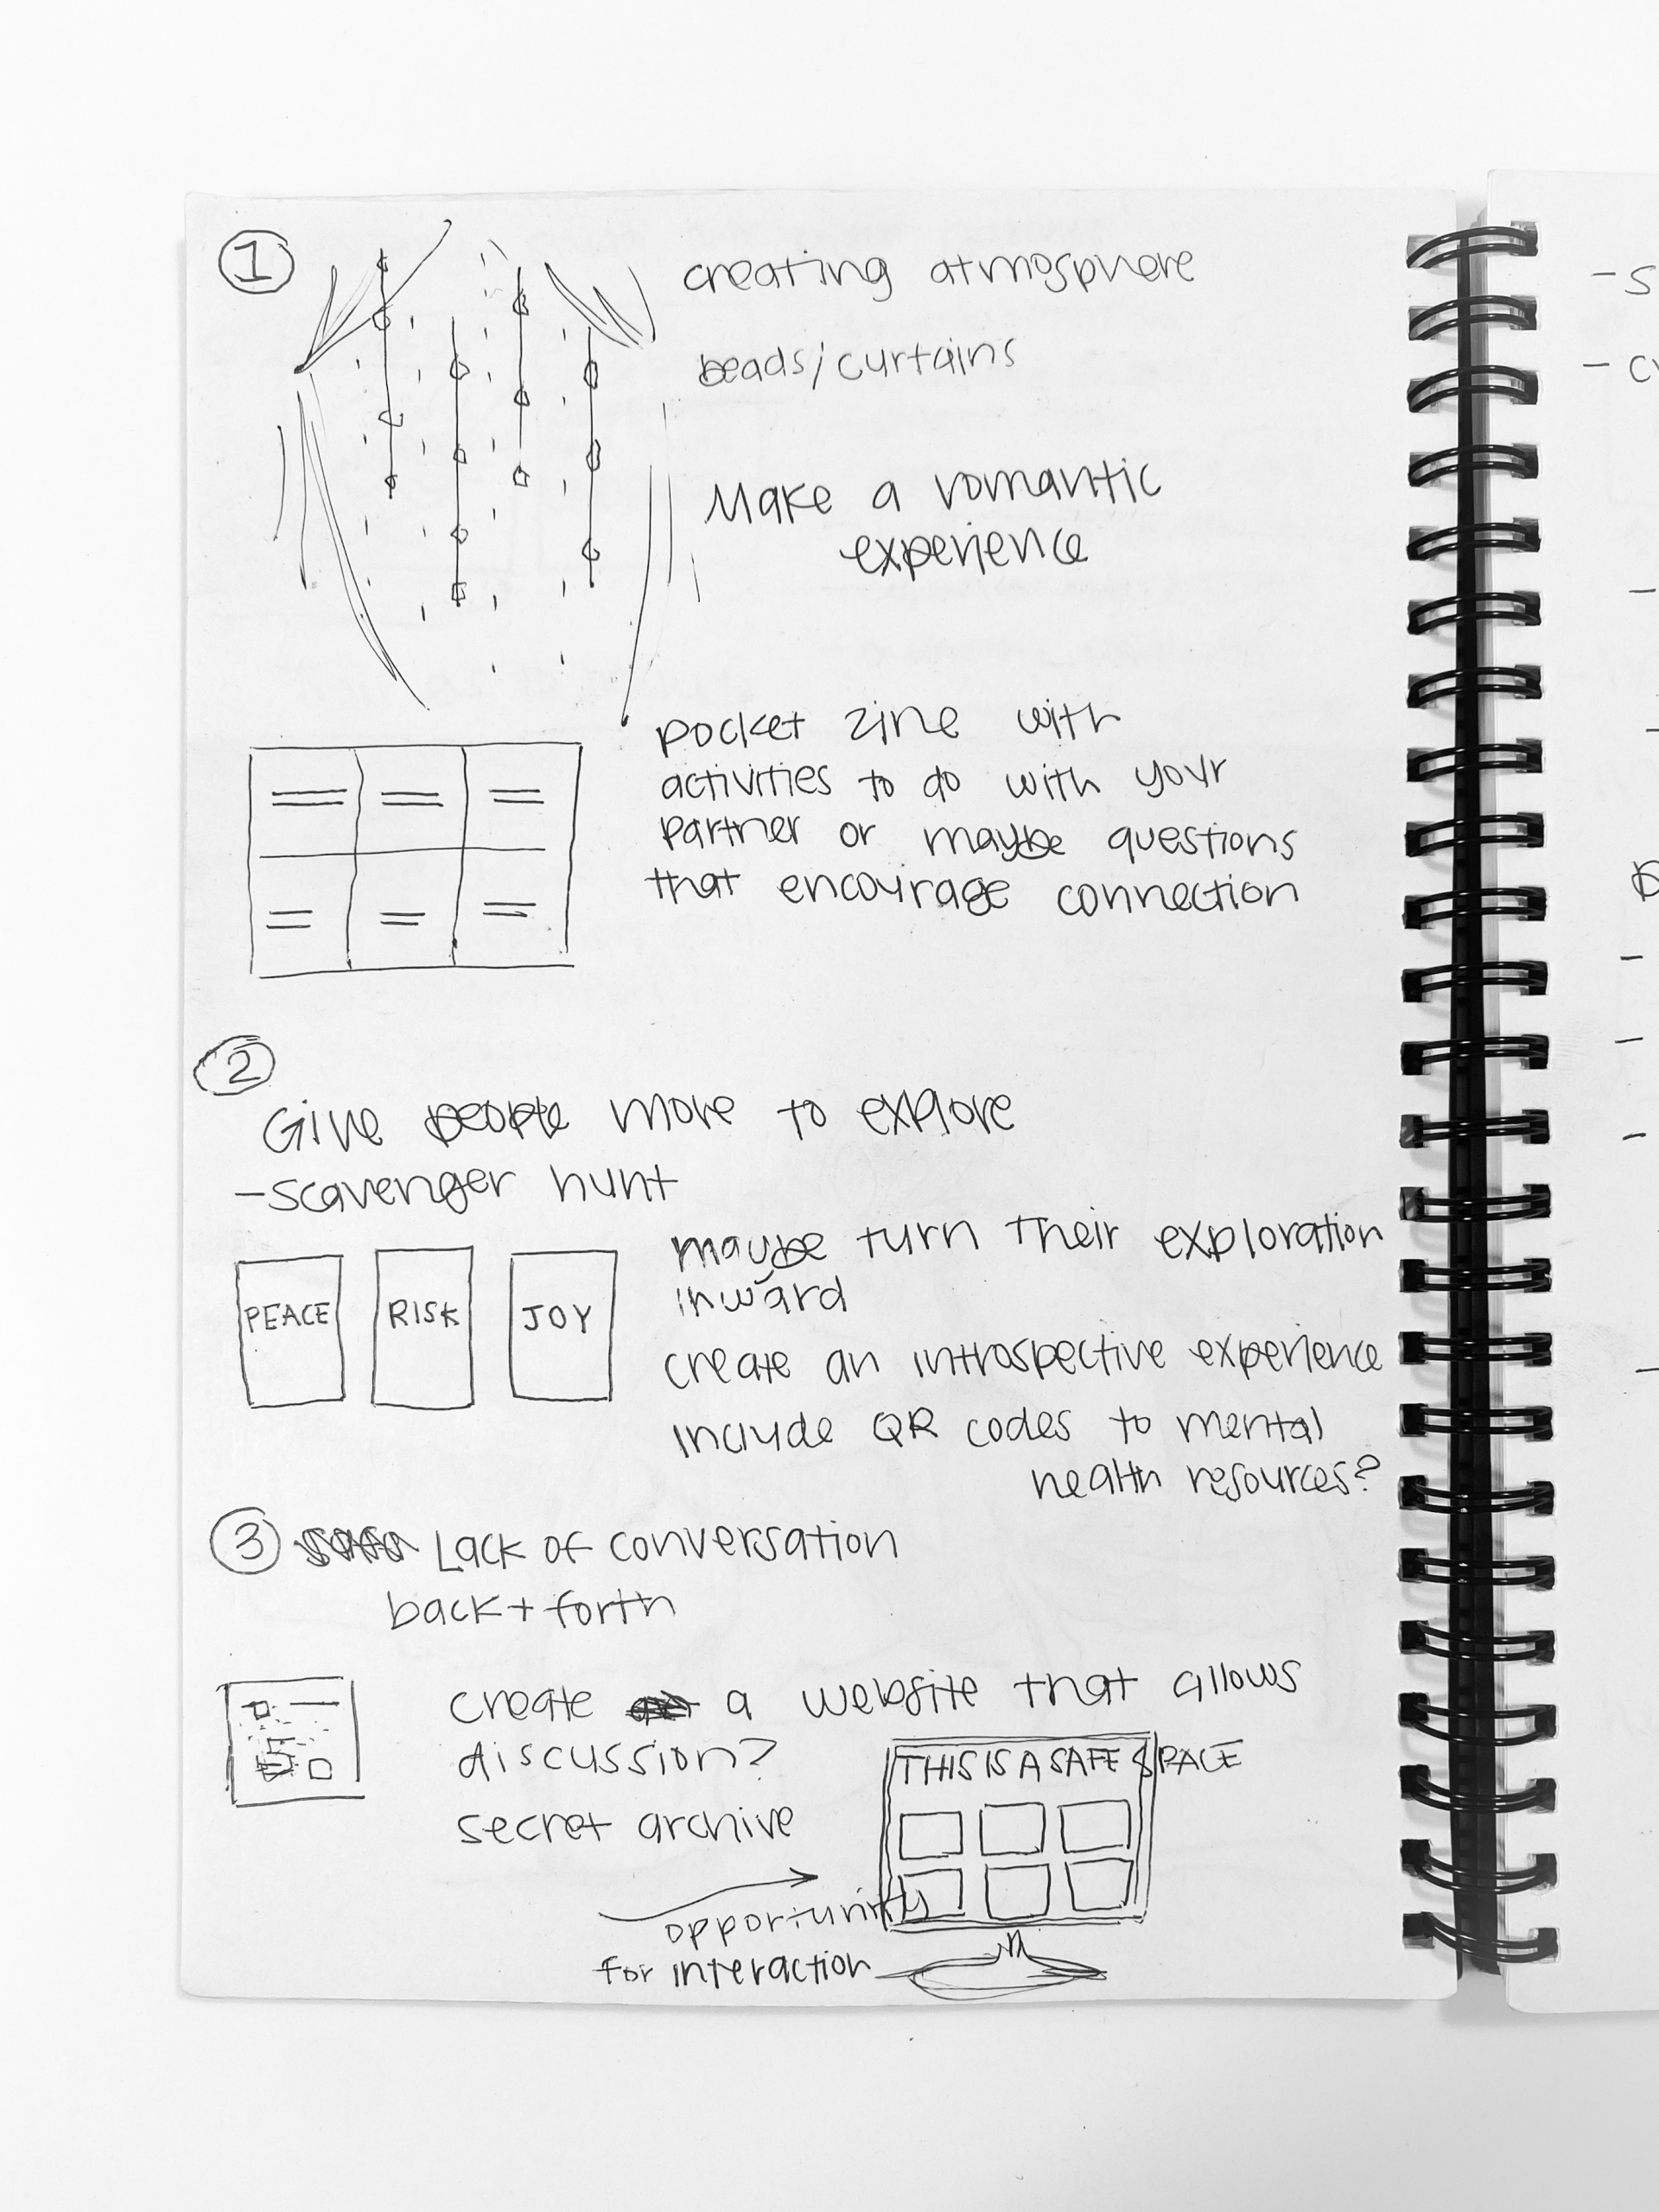 1
creating atmosphere
beads/curtains
Make a romantic
experience
pocket zine with
activities to do with your
partner or maybe questions
that encourage connection
2
Give people more to explore
-scavenger hunt
PEACE
RISK
JOY
maybe turn their exploration
inward
create an introspective experience
include QR codes to mental
health resources?
3 Lack of conversation
back + forth
create a website that allows
discussion?
secret archive
THIS IS A SAFE SPACE
opportunity
for interaction
- S